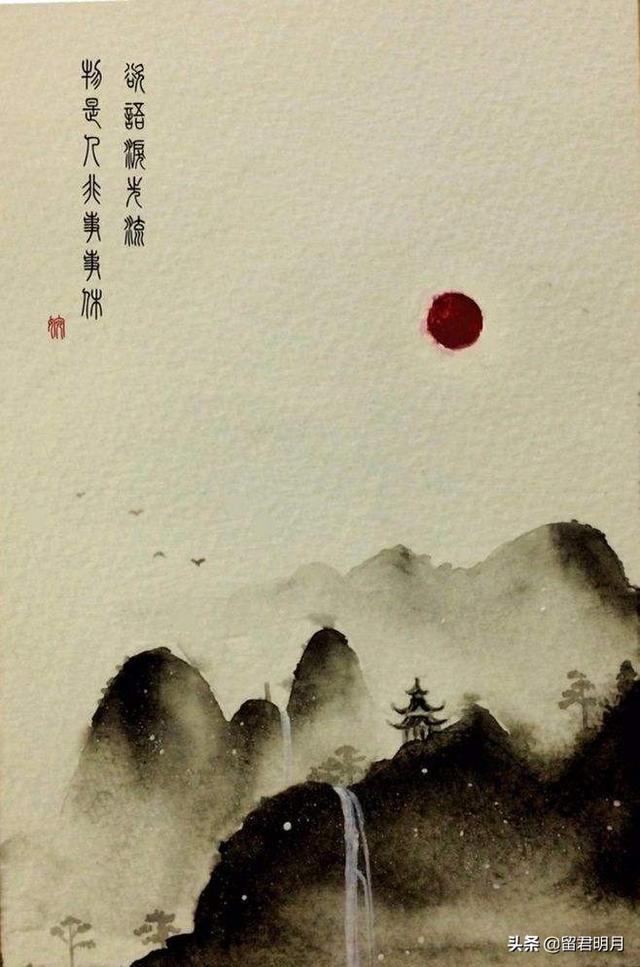 欲語淚先流
物是人非事事休
头条 @留君明月